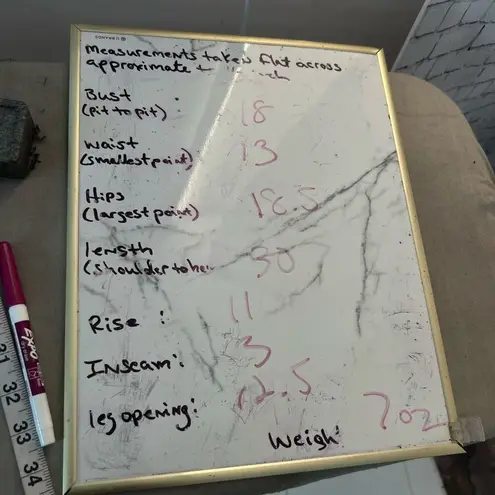 measurements taken flat across
approximate
Bust
(pit to pit) : 18
waist
(smallest point) 13
Hips
(largest point) 18.5
length
(shoulder to he 30
Rise : 11
Inseam: 3
leg opening: 12.5
Weigh 7 oz
EXPO
31
32
33
34